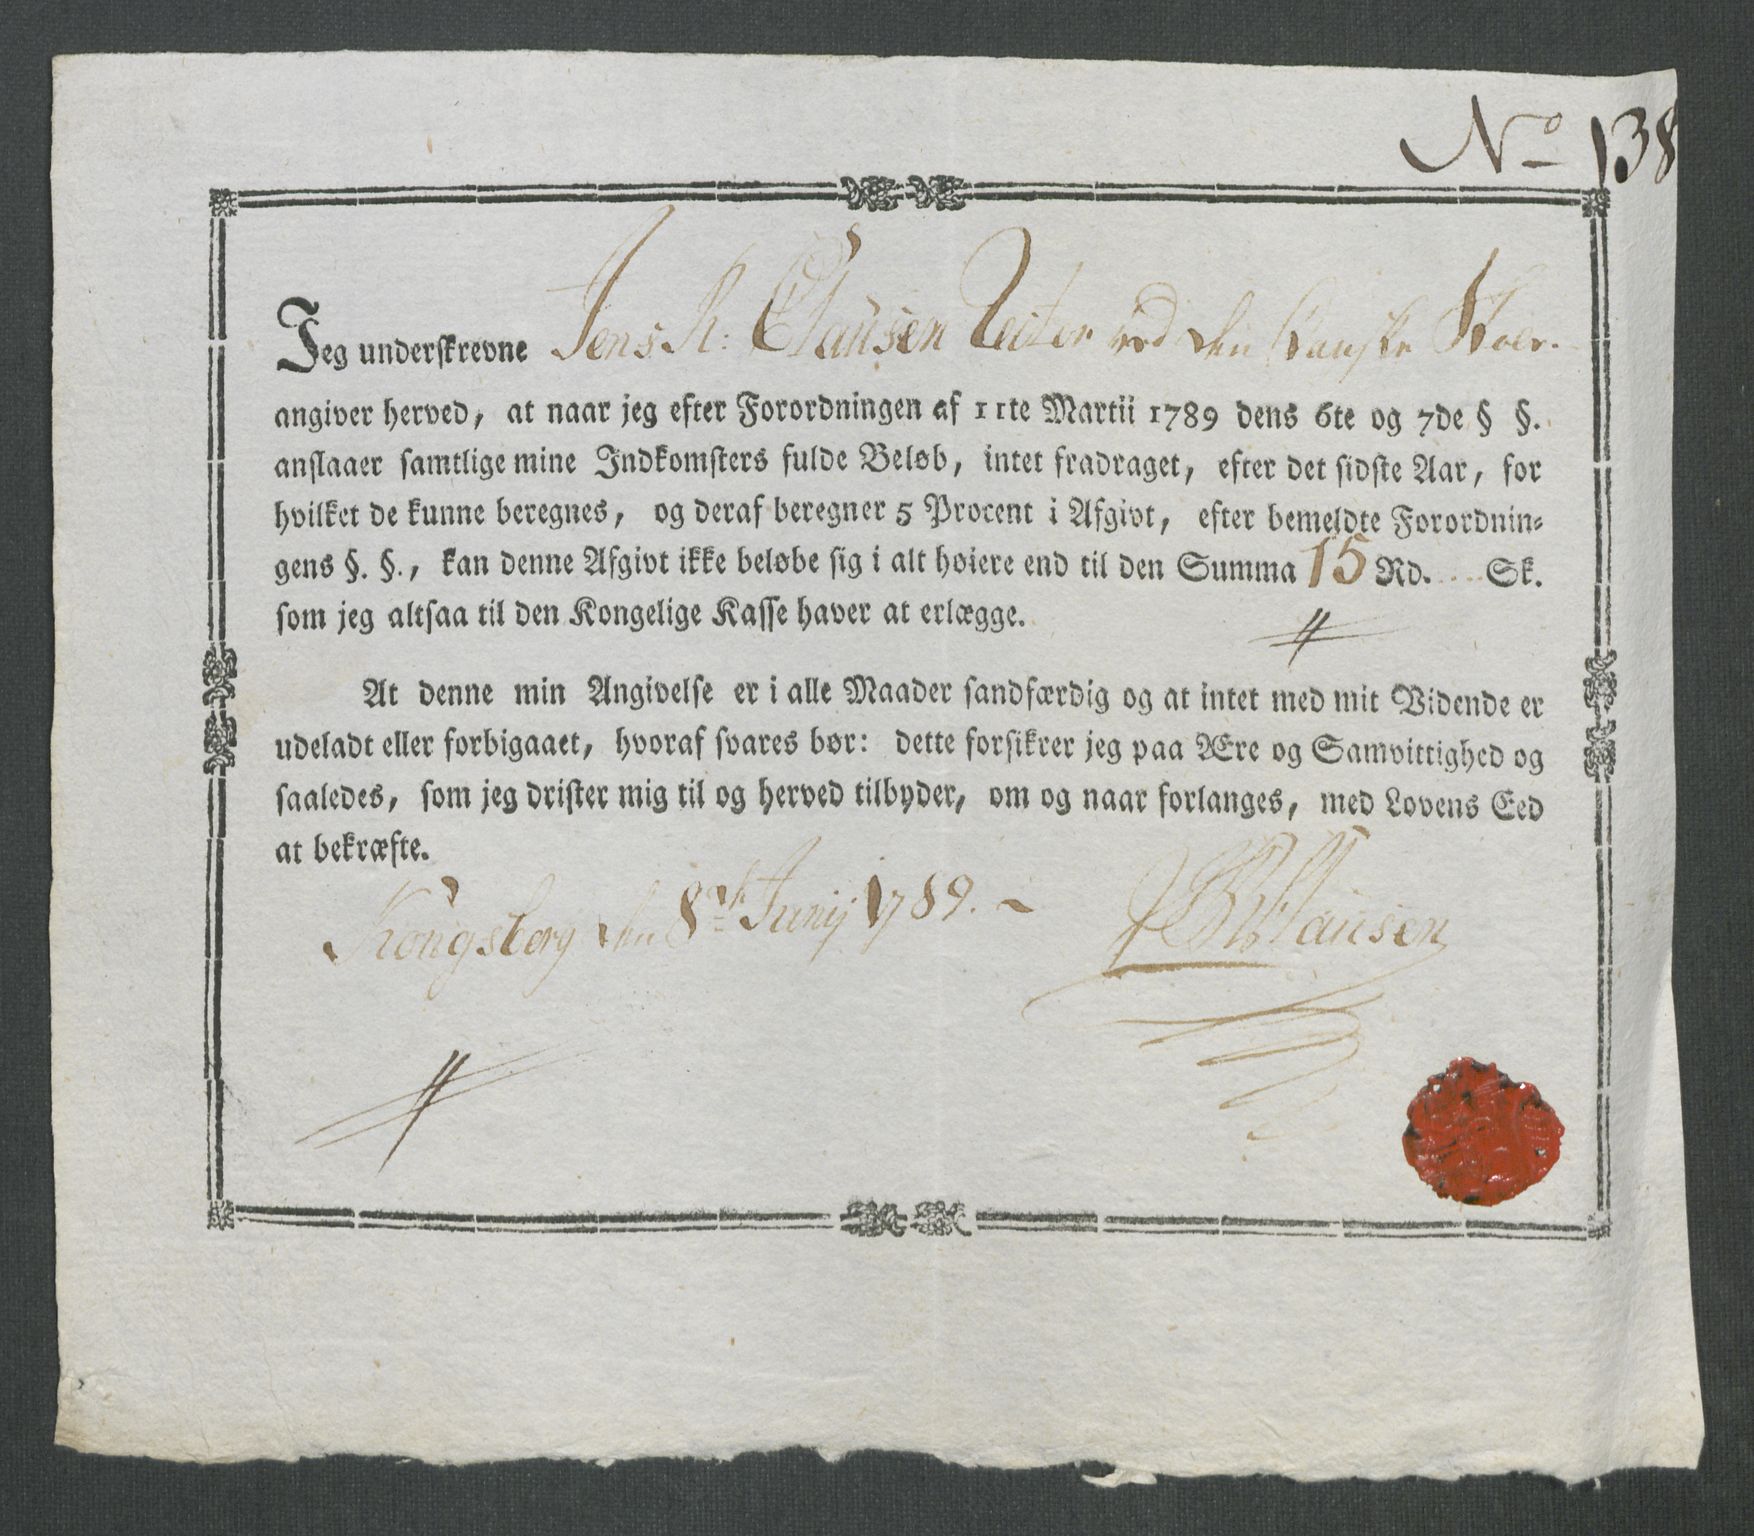 No 138
Jeg underskrevne Jens R: Clausen Rector ved den Danske Skole.
angiver herved, at naar jeg efter Forordningen af 11te Martii 1789 dens 6te og 7de § §.
anslaaer samtlige mine Indkomsters fulde Beløb, intet fradraget, efter det sidste Aar, for
hvilket de kunne beregnes, og deraf beregner 5 Procent i Afgivt, efter bemeldte Forordnin-
gens §. §., kan denne Afgivt ikke beløbe sig i alt høiere end til den Summa 15 Rd. Sk.
som jeg altsaa til den Kongelige Kasse haver at erlægge.
At denne min Angivelse er i alle Maader sandfærdig og at intet med mit Vidende er
udeladt eller forbigaaet, hvoraf svares bør: dette forsikrer jeg paa Ære og Samvittighed og
saaledes, som jeg drister mig til og herved tilbyder, om og naar forlanges, med Lovens Eed
at bekræfte.
Kongsberg den 8de Junij 1789.
Clausen